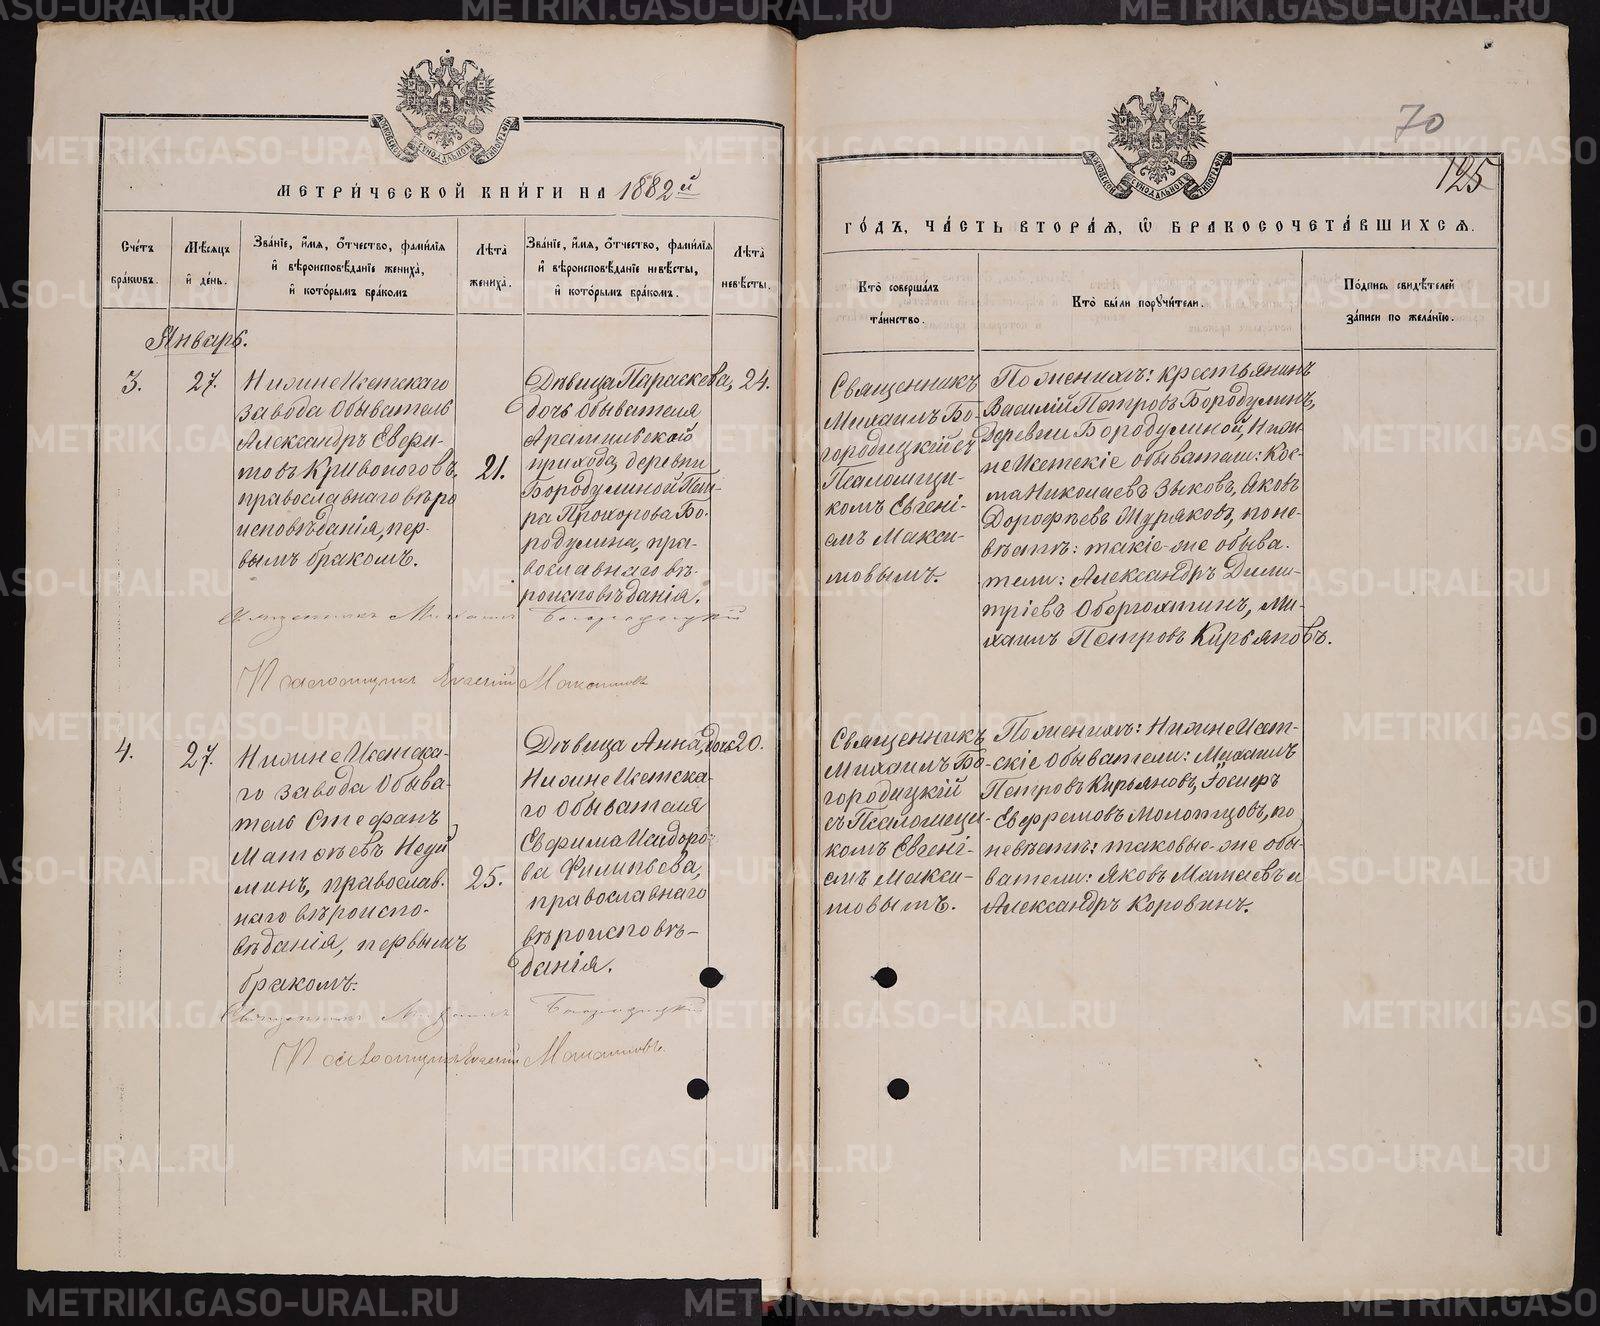 МЕТРИ́ЧЕСКОЙ КНИ́ГИ НА 1882й
Сче́тъ бра́кѡвъ.
Мѣ́сяцъ и҆ де́нь.
Зва́нїе, и҆́мя, ѻ҆́тчество, фами́лїя и҆ вѣроисповѣ́данїе жениха̀, и҆ кото́рымъ бра́комъ
Лѣ́та жениха̀.
Зва́нїе, и҆́мя, ѻ҆́тчество, фами́лїя и҆ вѣроисповѣ́данїе невѣ́сты, и҆ кото́рымъ бра́комъ.
Лѣ́та невѣ́сты.
Январь.
3.
27.
Нижне Исетскаго
завода Обыватель
Александръ Евфи-
мовъ Кривоноговъ,
православнаго вѣро
исповѣданія, пер-
вымъ бракомъ.
21.
Дѣвица Параскева,
дочь Обывателя
Арамильской
прихода, деревни
Бородулиной Пет-
ра Прохорова Бо-
родулина, пра-
вославнаго вѣ-
роисповѣданія.
24.
Священникъ Михаилъ Богородицкій
Псаломщикъ Евгеній Максимовъ
4.
27.
Нижне Исетска-
го завода Обыва-
тель Стефанъ
Матѳѣевъ Неуй
минъ, православ-
наго вѣроиспо-
вѣданія, первымъ
бракомъ.
25.
Дѣвица Анна, дочь
Нижне Исетска-
го Обывателя
Евфима Исидоро-
ва Филипьева,
православнаго
вѣроисповѣ-
данія.
20.
Священникъ Михаилъ Богородицкій
Псаломщикъ Евгеній Максимовъ.
70
125
ГО́ДЪ, ЧА́СТЬ ВТОРА́Я, Ѡ҆ БРАКОСОЧЕТА́ВШИХСЯ.
Кто̀ соверша́лъ та́инство.
Кто̀ бы́ли порꙋчи́тели.
По́дпись свидѣ́телей за́писи по жела́нїю.
Священникъ
Михаилъ Бо-
городицкій съ
Псаломщи-
комъ Евгені-
емъ Макси-
мовымъ.
По женихѣ: крестьянинъ
Василій Петровъ Бородулинъ,
деревни Бородулиной, Ниж-
не Исетскіе обыватели: Кос-
ма Николаевъ Зыковъ, Яковъ
Дорофѣевъ Муряковъ, по не-
вѣстѣ: такіе-же обыва-
тели: Александръ Дими-
тріевъ Оборотинъ, Ми-
хаилъ Петровъ Кирьяновъ.
Священникъ
Михаилъ Бо-
городицкій
съ Псаломщи-
комъ Евгені-
емъ Макси-
мовымъ.
По женихѣ: Нижне Исет-
скіе обыватели: Михаилъ
Петровъ Кирьяновъ, Іосифъ
Ефремовъ Молотцовъ, по
невѣстѣ: таковые-же обы-
ватели: Яковъ Матаевъ и
Александръ Коровинъ.
METRIKI.GASO-URAL.RU